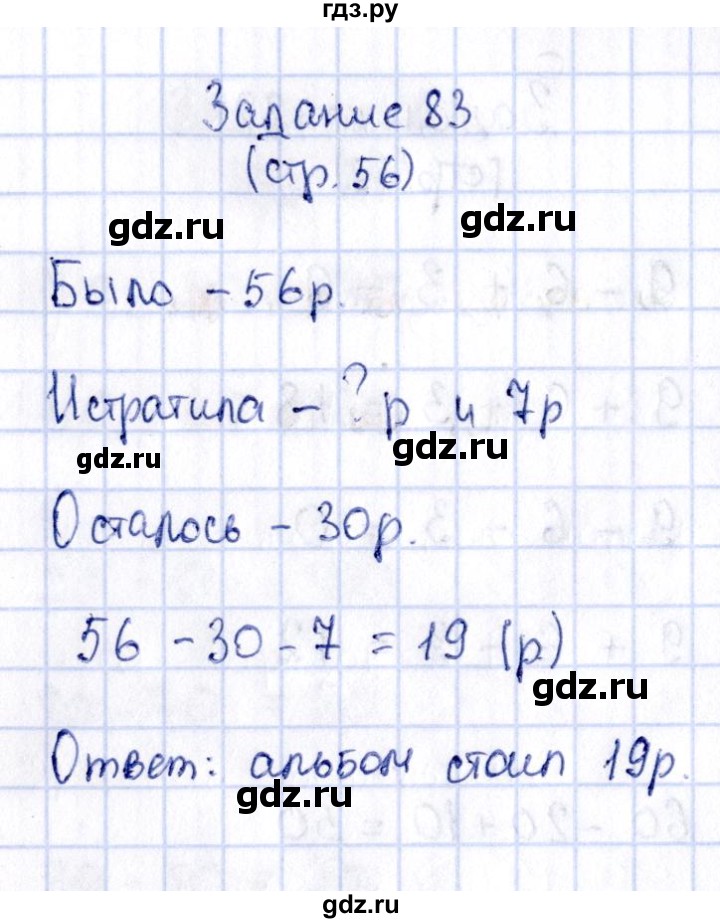 гдз.ру
Задание 83
(стр. 56)
gdz.ru
gdz.ru
Было - 56р.
Истратила - ? р и 7р
gdz.ru
gdz.ru
Осталось - 30р.
56 - 30 - 7 = 19 (р)
gdz.ru
Ответ: альбом стоил 19р.
gdz.ru
gdz.ru